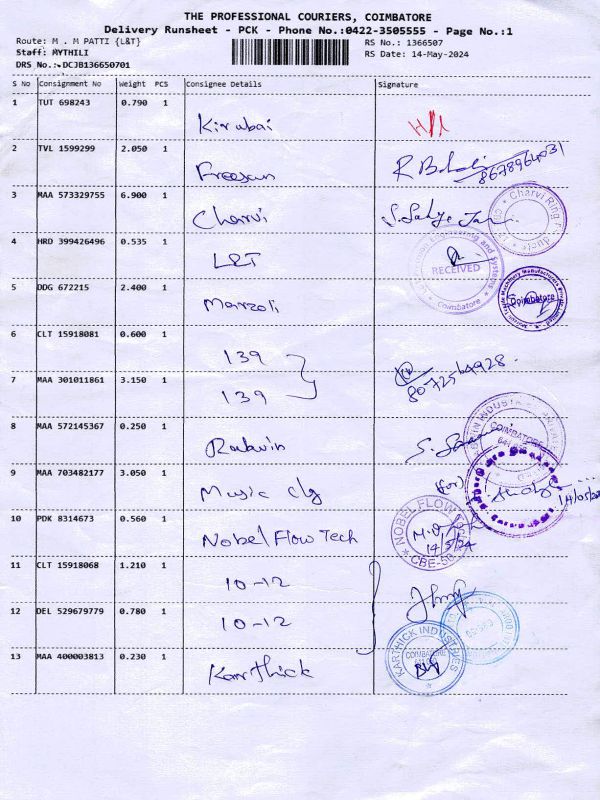 THE PROFESSIONAL COURIERS, COIMBATORE
Delivery Runsheet - PCK - Phone No.:0422-3505555 - Page No.:1
Route: M . M PATTI {L&T}
RS No.: 1366507
Staff: MYTHILI
RS Date: 14-May-2024
DRS No.:-DCJB136650701
S No Consignment No Weight PCS Consignee Details Signature
1 TUT 698243 0.790 1
Kirubai
2 TVL 1599299 2.050 1
8678964031
3 MAA 573329755 6.900 1
Charvi
Charvi Ring
4 HRD 399426496 0.535 1
L&T
RECEIVED
Coimbatore
5 DDG 672215 2.400 1
Marzoli
Coimbatore
6 CLT 15918081 0.600 1
139
7 MAA 301011861 3.150 1
139
8072564928
8 MAA 572145367 0.250 1
COIMBATORE
9 MAA 703482177 3.050 1
Music clg
(for)
10 PDK 8314673 0.560 1
Nobel Flow Tech
NOBEL FLOW
14/5/24
CBE-50
11 CLT 15918068 1.210 1
10-12
12 DEL 529679779 0.780 1
10-12
13 MAA 400003813 0.230 1
Karthick
KARTHICK INDUSTRIES
COIMBATORE